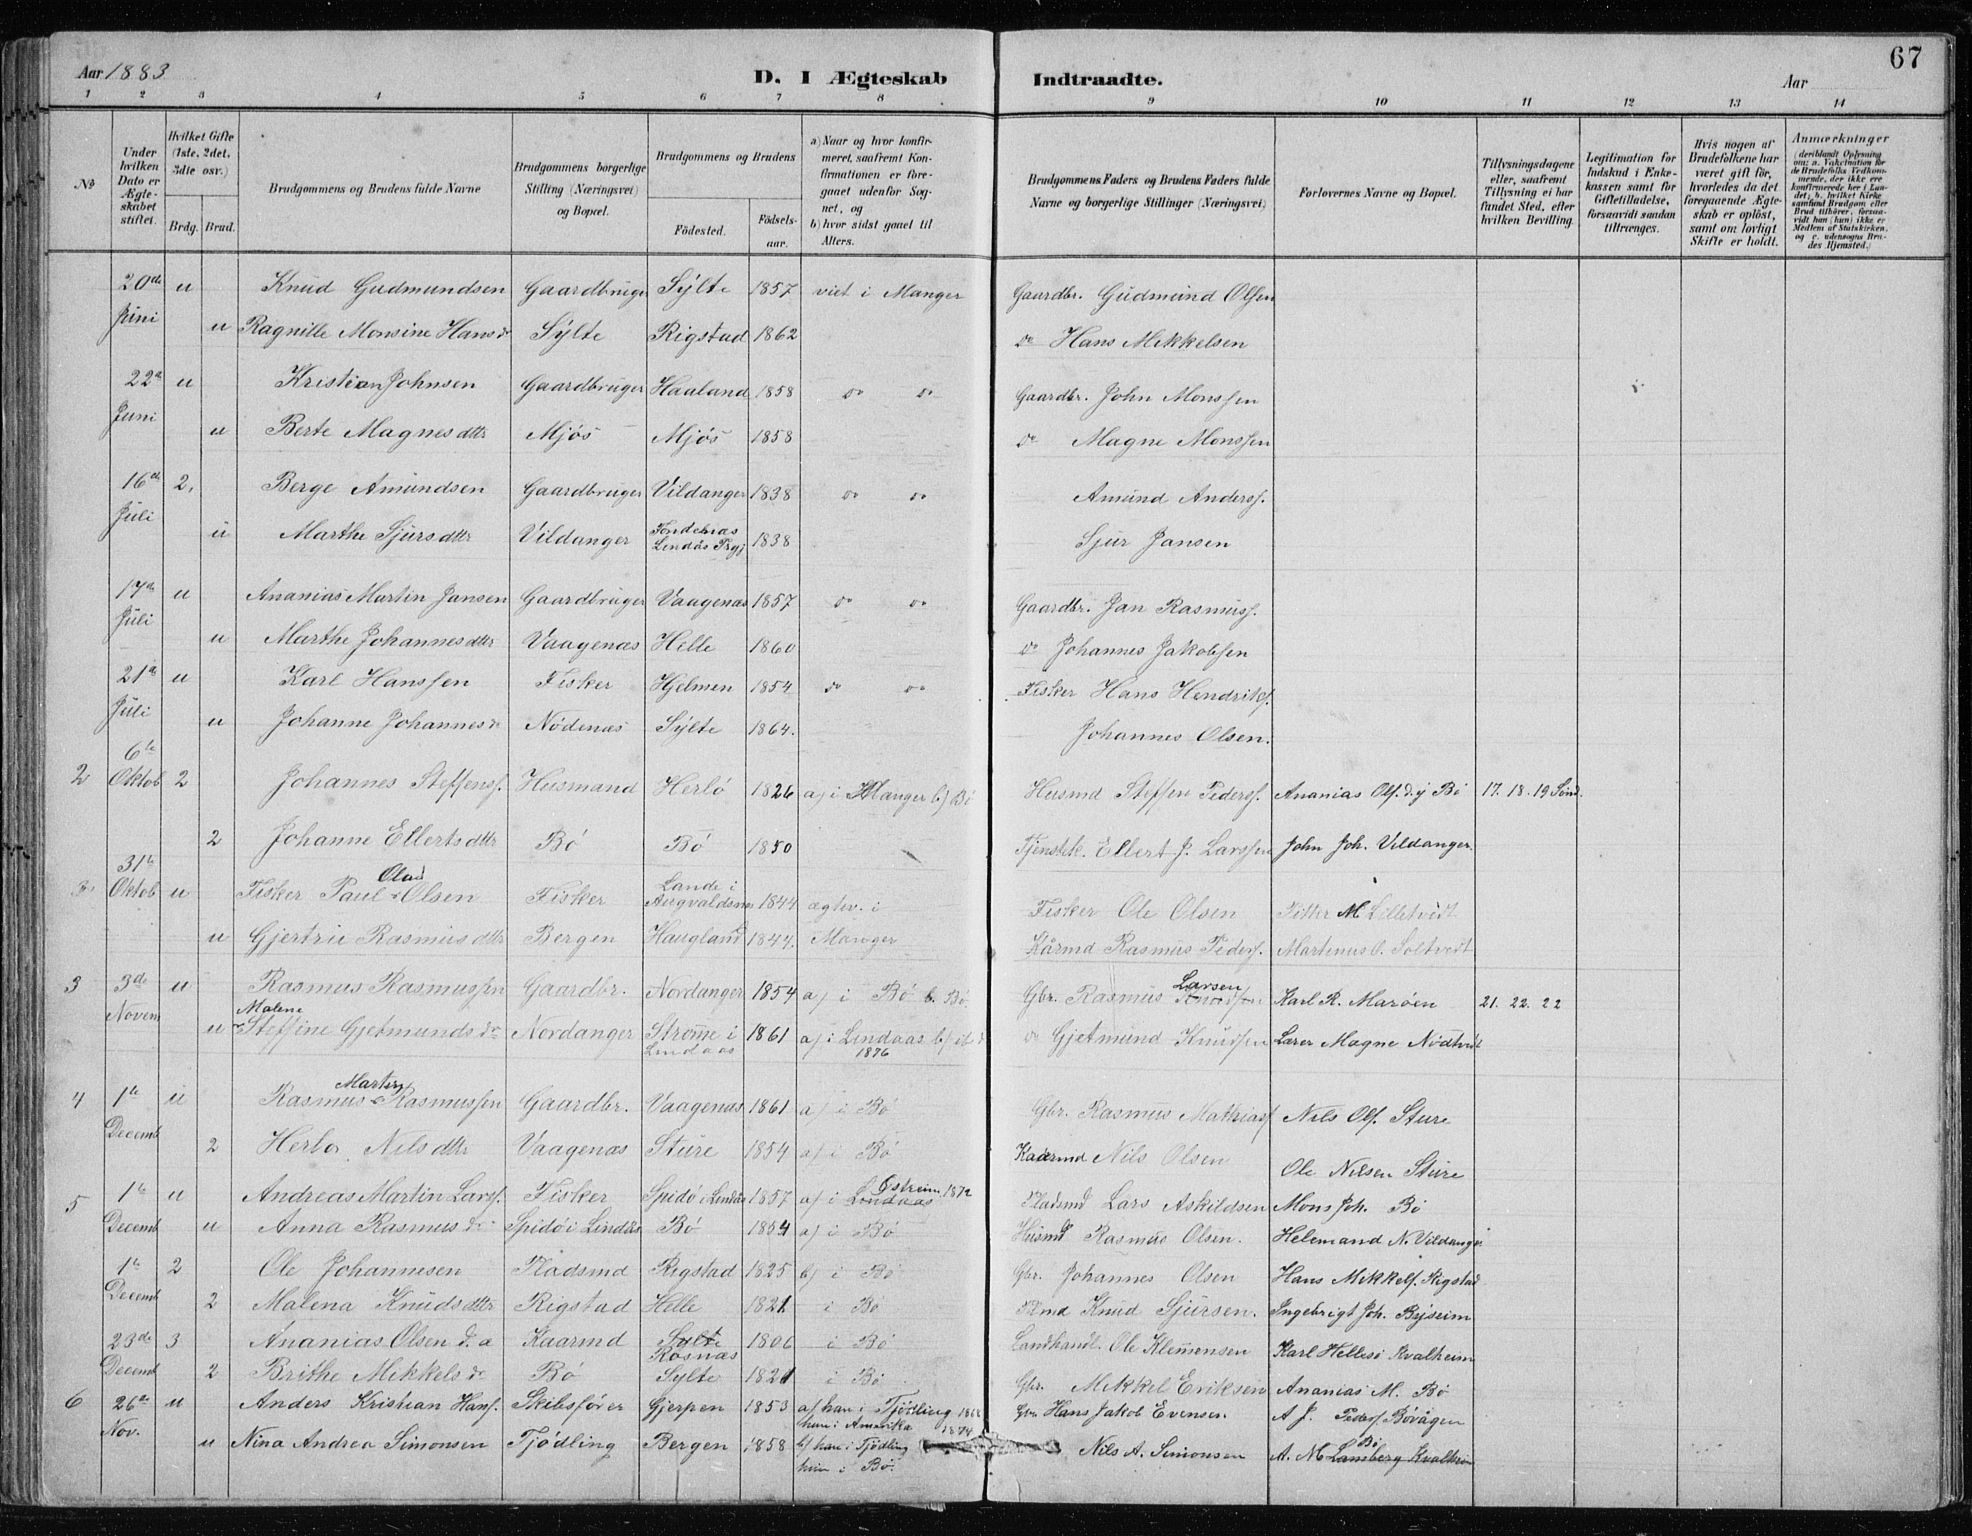 Aar 1883.
D. I Ægteskab Indtraadte.
Aar
67
1 2 3 4 5 6 7 8 9 10 11 12 13 14
№
Under hvilken Dato er Ægteskabet stiftet.
Hvilket Gifte (1ste, 2det, 3die osv.)
Brdg. Brud.
Brudgommens og Brudens fulde Navne
Brudgommens borgerlige Stilling (Næringsvei) og Bopæl.
Brudgommens og Brudens
Födested.
Födselsaar.
a) Naar og hvor konfirmeret, saafremt Konfirmationen er foregaaet udenfor Sognet, og
b) hvor sidst gaaet til Alters.
Brudgommens Faders og Brudens Faders fulde Navne og borgerlige Stillinger (Næringsvei)
Forlovernes Navne og Bopæl.
Tillysningsdagene eller, saafremt Tillysning ei har fundet Sted, efter hvilken Bevilling.
Legitimation for Indskud i Enkekassen samt for Giftetilladelse, forsaavidt saadan tiltrænges.
Hvis nogen af Brudefolkene har været gift för, hvorledes da det foregaaende Ægteskab er oplöst, samt om lovligt Skifte er holdt.
Anmærkninger
(deriblandt Oplysning om: a. Vakcination for de Brudefolks Vedkommende, der ikke ere konfirmerede her i Landet; b. hvilket Kirkesamfund Brudgom eller Brud tilhörer, forsaavidt han (hun) ikke er Medlem af Statskirken, og c. udensogns Brudes Hjemsted.)
20de u Knud Gudmundsen Gaardbruger Sylte 1857 viet i Manger Gaardbr. Gudmund Olsen
Juni u Ragnille Monsine Hansdr Sylte Rigstad 1862 do Hans Mikkelsen
22de u Kristian Johnsen Gaardbruger Haaland 1858 do do Gaardbr. John Monssen
Juni u Berte Magnesdttr Mjös Mjös 1858 do Magne Monssen
16de 2. Berge Amundsen Gaardbruger Vildanger 1838 do do Amund Anderss.
Juli u Marthe Sjursdttr Vildanger Lindås Prgj 1838 Sjur Jansen
17de u Ananias Martin Jansen Gaardbruger Vaagenæs 1857 do do Gaardbr. Jan Rasmuss.
Juli u Marthe Johannesdttr Vaagenæs Helle 1860 do Johannes Jakobsen
21de u Karl Hanssen Fisker Hjelmen 1854 do do Fisker Hans Hendriks.
Juli u Johanne Johannesdr Nödenæs Sylte 1864. Johannes Olsen.
6te
2 Oktob 2 Johannes Steffenss. Husmand Herlö 1826 a) i Manger b) Bö Husmd Steffen Peders. Ananias Ols. d.y Bö 17. 18. 19 Sönd.
2 Johanne Ellertsdttr Bö Bö 1850 Ellert J. Larssen John Joh. Vildanger.
31te Olai Lande i
3. Oktob u Fisker Paul Olsen Fisker 1844 ægtv. i Fisker Ole Olsen Lilletvedt
u Gjertrie Rasmusdttr Bergen Haugland 1844. Manger Kårmd Rasmus Peders. Martinus O. Soltvedt
3 3de u Rasmus Rasmussen Gaardbr. Nordanger 1854 a) i Bö b. Bö Gbr. Rasmus Larsen Karl R. Maröen 21. 22. 22
Malene
Novem u Steffine Gjetmundsdr Nordanger Ströme i Lindaas 1861 a) i Lindaas b) 1876 do Gjetmund Knudsen Lærer Magne Nödtvedt
Martin
4 1te u Rasmus Rasmussen Gaardbr. Vaagenæs 1861 a) i Bö Gbr. Rasmus Mathiass Nils Ols. Sture
Decemb 2 Herbor Nilsdttr Vaagenæs Sture 1854 a) i Bö Kaarmd Nils Olsen Ole Nilsen Sture
5 1te u Andreas Martin Larss. Fisker Spidö i Lindås 1857 a) i Lindaas Ostreim 1872 Pladsmd Lars Askildsen Mons Joh. Bö
Decemb u Anna Rasmusdr Spidö i Lindås Bö 1854 a) i Bö Husmd Rasmus Olsen. Helemand N. Vildanger
1te 2 Ole Johannesen Pladsmd Rigstad 1825 b) i Bö Gbr. Johannes Olsen Hans Mikkels. Rigstad
Decemb 2 Malena Knudsdttr Rigstad Helle 1821 i Bö Knud Sjursen. Ingebrigt Joh. Bysheim
23de 3 Ananias Olsen d. æ Kaarmd Sylte Rosnæs 1806 i Bö Landhandl. Ole Klemensen Karl Hellesö Kvalheim
Decemb 2 Brithe Mikkelsdr Bö Sylte 1821 i Bö Gbr. Mikkel Eriksen Ananias M. Bö
6 26de u Anders Kristian Hans. Skibsförer Gjerpen 1853 a) han i Tjödling hun i Amerika 1874 Gbr. Hans Jakob Evensen A J. Peders. Bövågen
Nov. u Nina Andrea Simonsen Tjödling Bergen 1858 b) han i Tjödling hun i Bö. Nils A. Simonsen A. M. Lamberg Kvalheim Bö